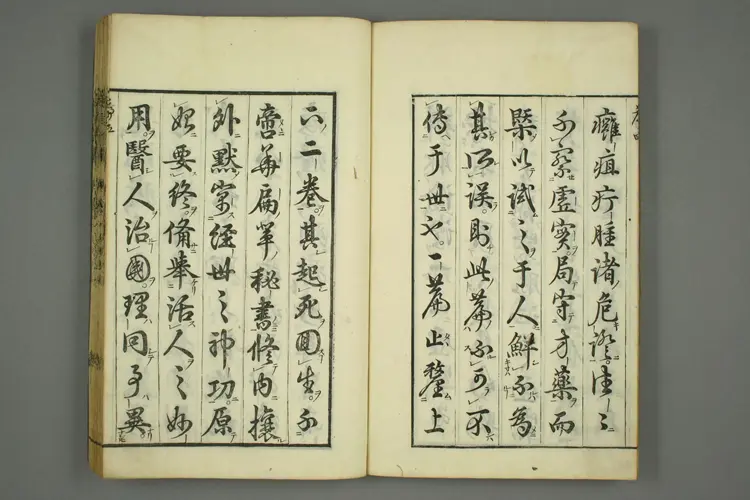 癰疽疔腫諸危證往々
不察虛實局守方藥而
槩以試之于人鮮不為
其所誤則此篇不可不
傳于世也一篇止釐上
六二卷其起死回生不
啻華扁筆秘書修內攘
外默寓經世之神功原
始要終備舉活人之妙
用醫人治國理同事異